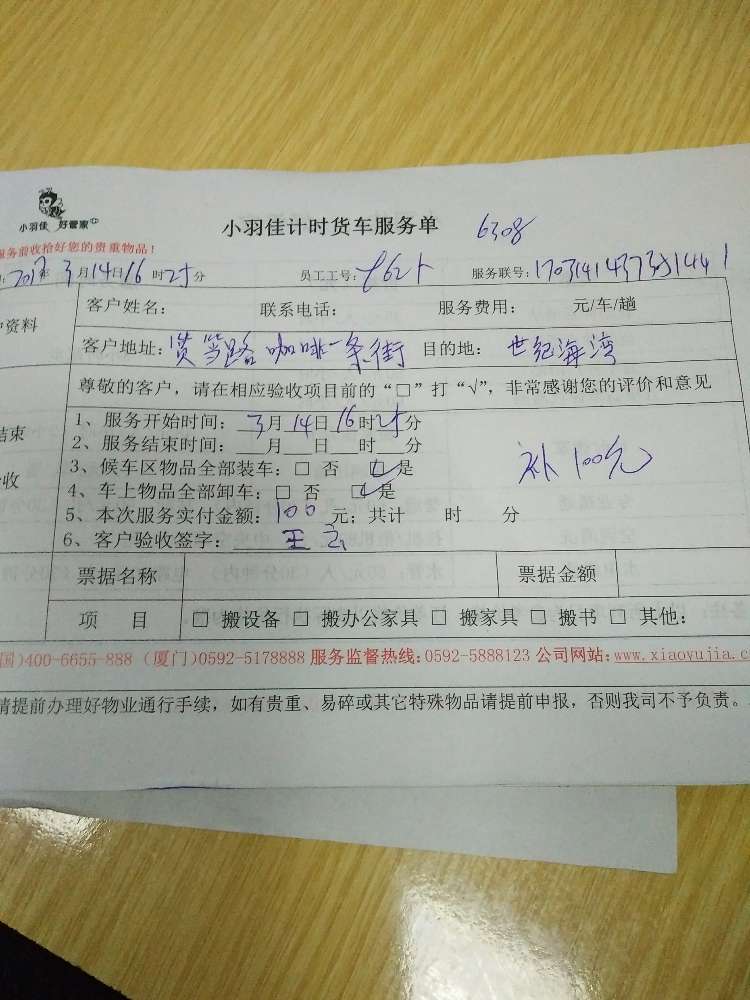 小羽佳 好管家
小羽佳计时货车服务单 6308
服务前收拾好您的贵重物品！
2017年3月14日16时25分 员工工号： 服务联号：
客户姓名： 联系电话： 服务费用： 元/车/趟
户资料
客户地址：筼筜路咖啡一条街 目的地：世纪海湾
尊敬的客户，请在相应验收项目前的“□”打“√”，非常感谢您的评价和意见
结束
收
1、服务开始时间：3月14日16时25分
2、服务结束时间：___月___日___时___分
3、候车区物品全部装车：□ 否 □ 是
补100元
4、车上物品全部卸车：□ 否 ☑ 是
5、本次服务实付金额：100元；共计 时 分
6、客户验收签字：王
票据名称 票据金额
项 目 □ 搬设备 □ 搬办公家具 □ 搬家具 □ 搬书 □ 其他：
国)400-6655-888 (厦门)0592-5178888 服务监督热线:0592-5888123 公司网站:www.xiaoyujia.c
请提前办理好物业通行手续，如有贵重、易碎或其它特殊物品请提前申报，否则我司不予负责。